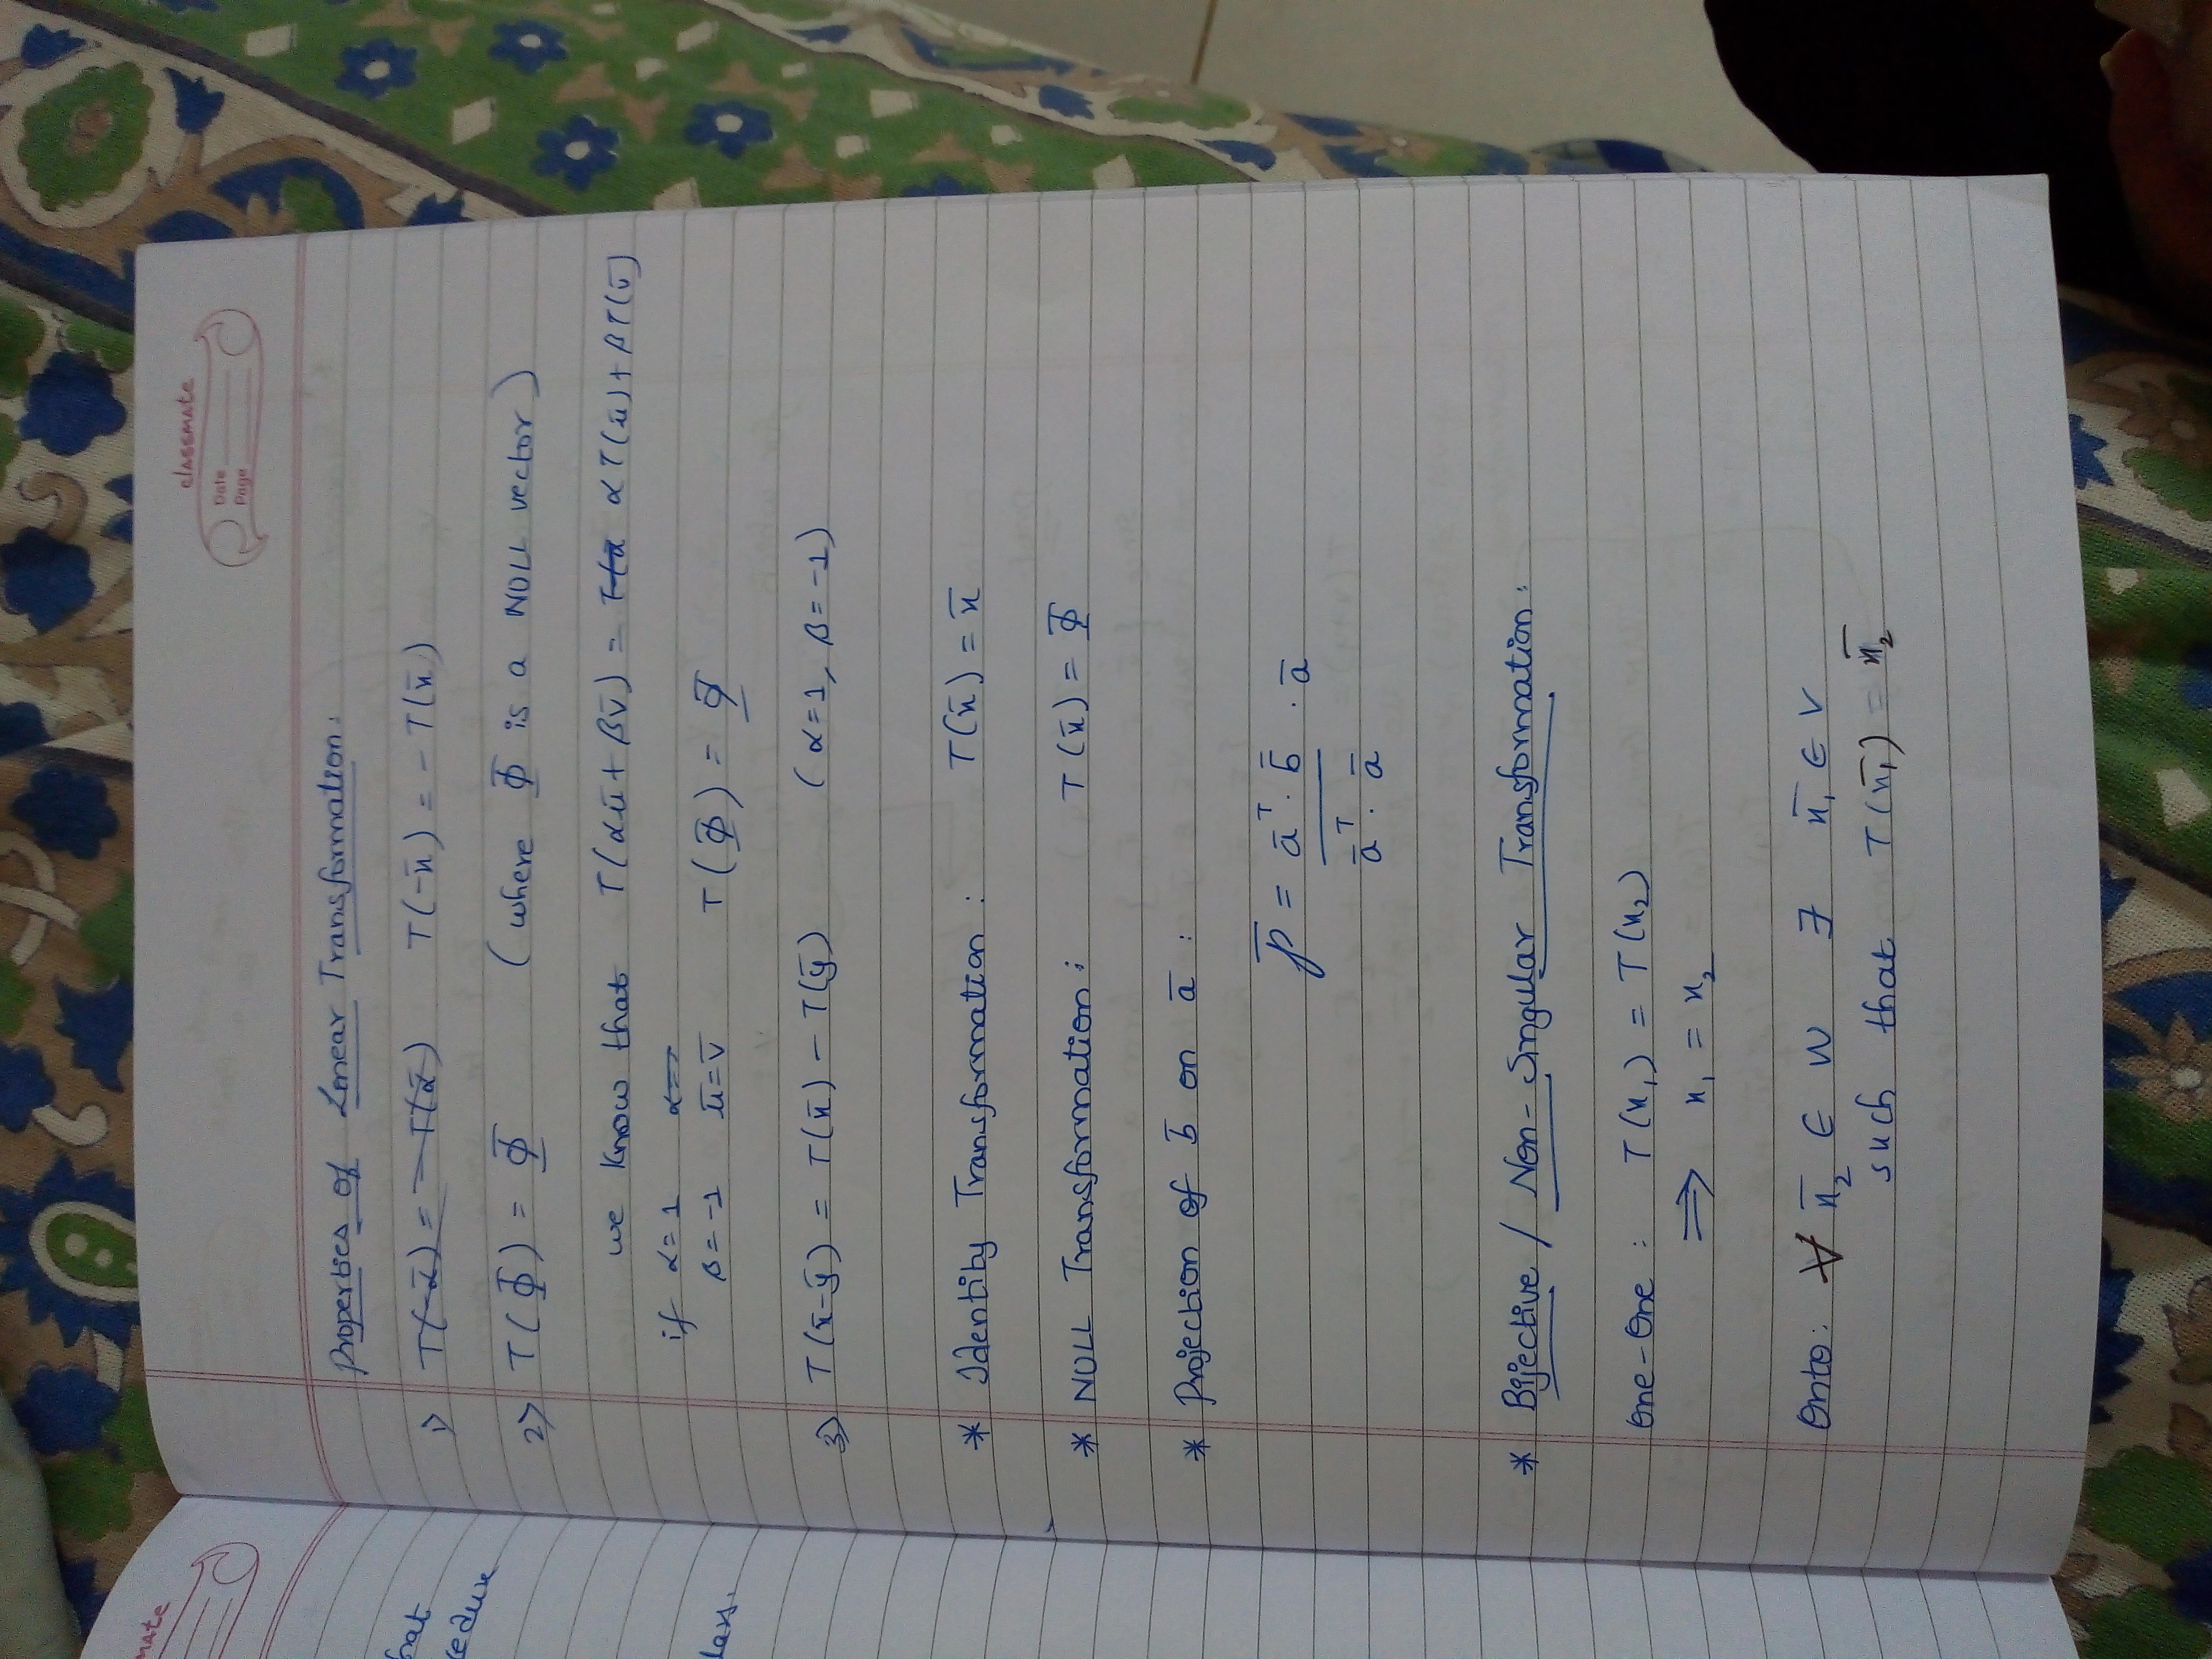 classmate
Date
Page
Properties of Linear Transformation:
1) T(-x̄) = - T(x̄)
2) T(Φ̄) = Φ̄ (where Φ̄ is a NULL vector)
we know that T(αū + βv̄) = αT(ū) + βT(v̄)
if α = 1
β = -1 ū = v̄ T(Φ̄) = Φ̄
3) T(x̄-ȳ) = T(x̄) - T(ȳ) (α=1, β=-1)
* Identity Transformation: T(x̄) = x̄
* NULL Transformation: T(x̄) = Φ̄
* Projection of b̄ on ā :
p̄ = ā^T . b̄ . ā
ā^T . ā
* Bijective / Non-Singular Transformation:
One-One : T(x₁) = T(x₂)
⇒ x₁ = x₂
Onto: ∀ x̄₂ ∈ W ∃ x̄₁ ∈ V
such that T(x̄₁) = x̄₂
mate
hat
lass.